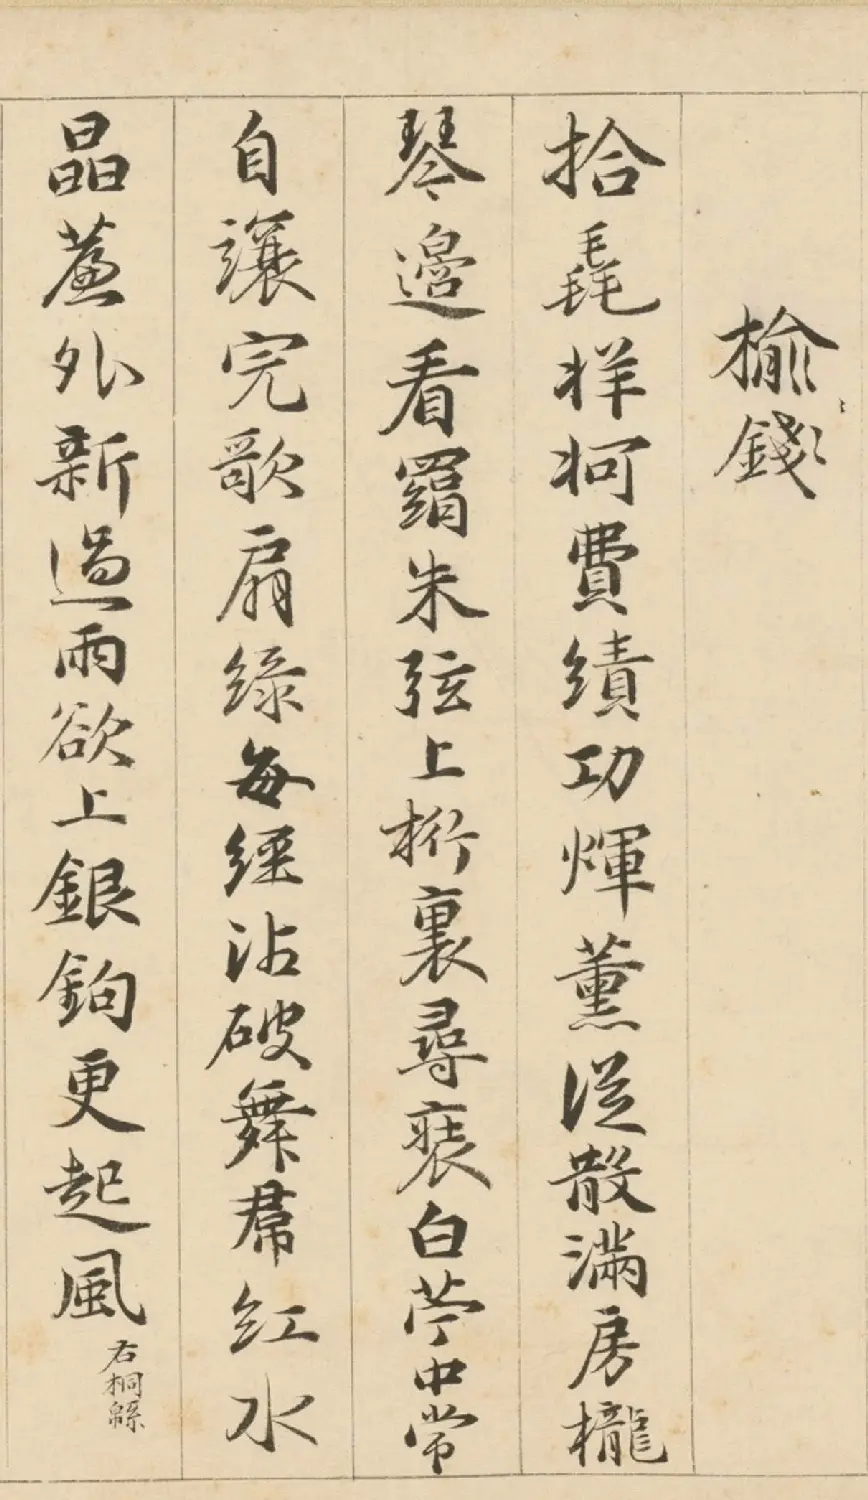 榆錢
拾毳牂牁費績功煇薰從散滿房櫳
琴邊看罥朱弦上桁裏尋白苧中常
自讓完歌扇綠每經沾破舞帬紅水
晶簾外新過雨欲上銀鉤更起風
右桐緜